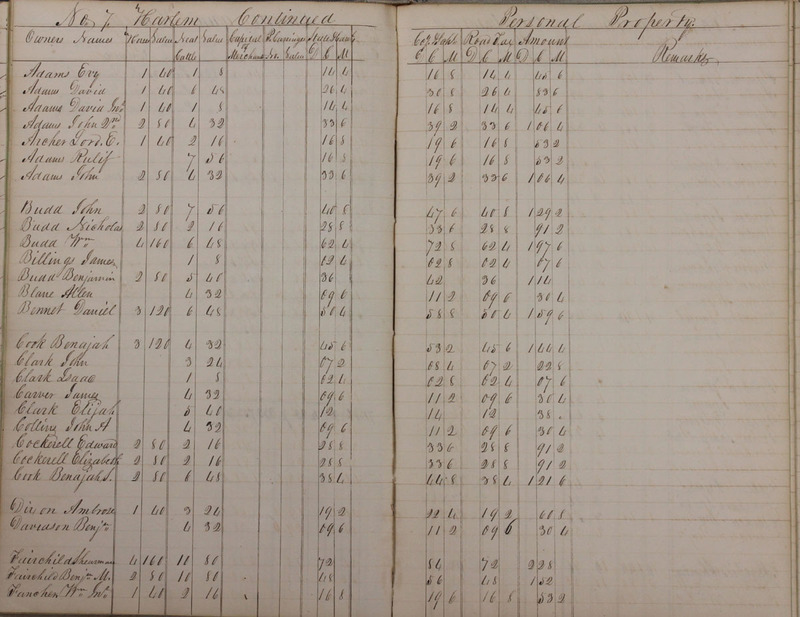 No. 7 Harlem Continued Personal Property
Owners Names Horses Value Neat Cattle Value Capital in Merchand. Value State & County D C M Co. & Tshp. D C M Road Tax D C M Amount D C M Remarks
Adams Evy 1 40 1 8 14 4 16 8 14 4 45 6
Adams David 1 40 6 48 26 4 30 8 26 4 83 6
Adams David Jnr 1 40 1 8 14 4 16 8 14 4 45 6
Adams John 2nd 2 80 4 32 33 6 39 2 33 6 1 06 4
Archer Lord. E. 1 40 2 16 16 8 19 6 16 8 53 2
Adams Rulif 7 56 16 8 19 6 16 8 53 2
Adams John 2 80 4 32 33 6 39 2 33 6 1 06 4
Budd John 2 80 7 56 40 8 47 6 40 8 1 29 2
Budd Nicholas 2 80 2 16 28 8 33 6 28 8 91 2
Budd Wm 4 160 6 48 62 4 72 8 62 4 1 97 6
Billings James 1 8 02 4 02 8 02 4 07 6
Budd Benjamin 2 80 5 40 36 42 36 1 14
Blane Allen 4 32 09 6 11 2 09 6 30 4
Bennet Daniel 3 120 6 48 50 4 58 8 50 4 1 59 6
Cook Benajah 3 120 4 32 45 6 53 2 45 6 1 44 4
Clark John 3 24 07 2 08 4 07 2 22 8
Clark Isaac 1 8 02 4 02 8 02 4 07 6
Carver James 4 32 09 6 11 2 09 6 30 4
Clark Elijah 5 40 12 14 12 38
Collins John A 4 32 09 6 11 2 09 6 30 4
Cockerell Edward 2 80 2 16 28 8 33 6 28 8 91 2
Cockerell Elizabeth 2 80 2 16 28 8 33 6 28 8 91 2
Cook Benajah S. 2 80 6 48 38 4 44 8 38 4 1 21 6
Dixon Ambrose 1 40 3 24 19 2 22 4 19 2 60 8
Davidson Benjn 4 32 09 6 11 2 09 6 30 4
Fairchild Shearman 4 160 10 80 72 84 72 2 28
Fairchild Benjn M. 2 80 10 80 48 56 48 1 52
Fancher Wm Jnr 1 40 2 16 16 8 19 6 16 8 53 2